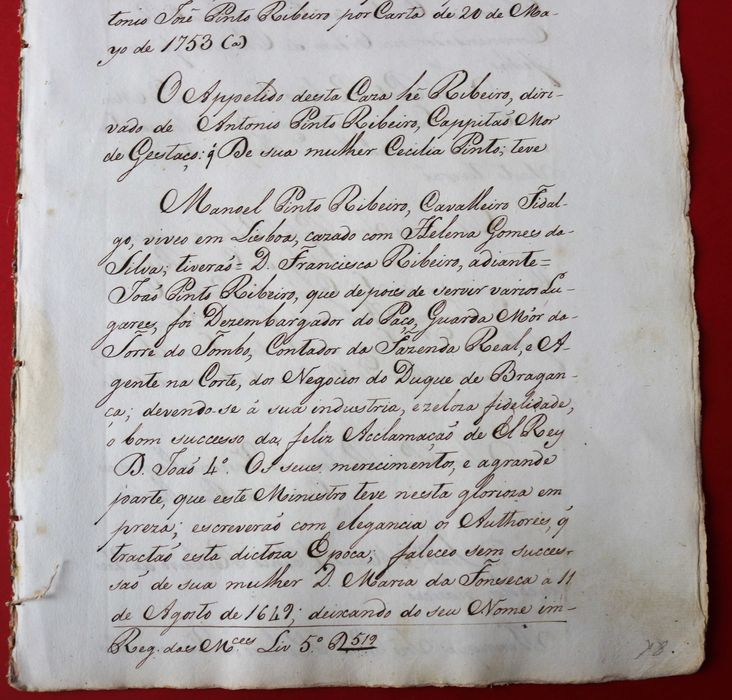 tonio Jozê Pinto Ribeiro por Carta de 20 de Ma-
yo de 1753 (a)
O Appelido desta Caza hé Ribeiro, diri-
vado de Antonio Pinto Ribeiro, Cappitaõ Mor
de Gestaço: q̃ De sua mulher Cecilia Pinto; teve
Manoel Pinto Ribeiro, Cavalleiro Fidal-
go, viveo em Lisboa, cazado com Helena Gomes da
Silva; tiveraõ = D. Francisca Ribeiro, adiante =
Joaõ Pinto Ribeiro, que depois de vervir varios Lu-
gares, foi Dezembargador do Paço, Guarda Mór da
Torre do Tombo, Contador da Fazenda Real, e A-
gente na Corte, dos Negocios do Duque de Bragan-
ça; devendo-se á sua industria, e zeloza fidelidade,
o bom successo da feliz Acclamaçaõ de El Rey
D. Joaõ 4º. Os seus merecimentos, e a grande
parte, que este Ministro teve nesta glorioza em
preza; escreveraõ com elegancia os Authores, q̃
tractaõ esta dictoza Epoca; faleceo sem succes-
saõ de sua mulher D. Maria da Fonseca a 11
de Agosto de 1649; deixando do seu Nome im-
Reg. das M.ces Liv 5º P 519
78